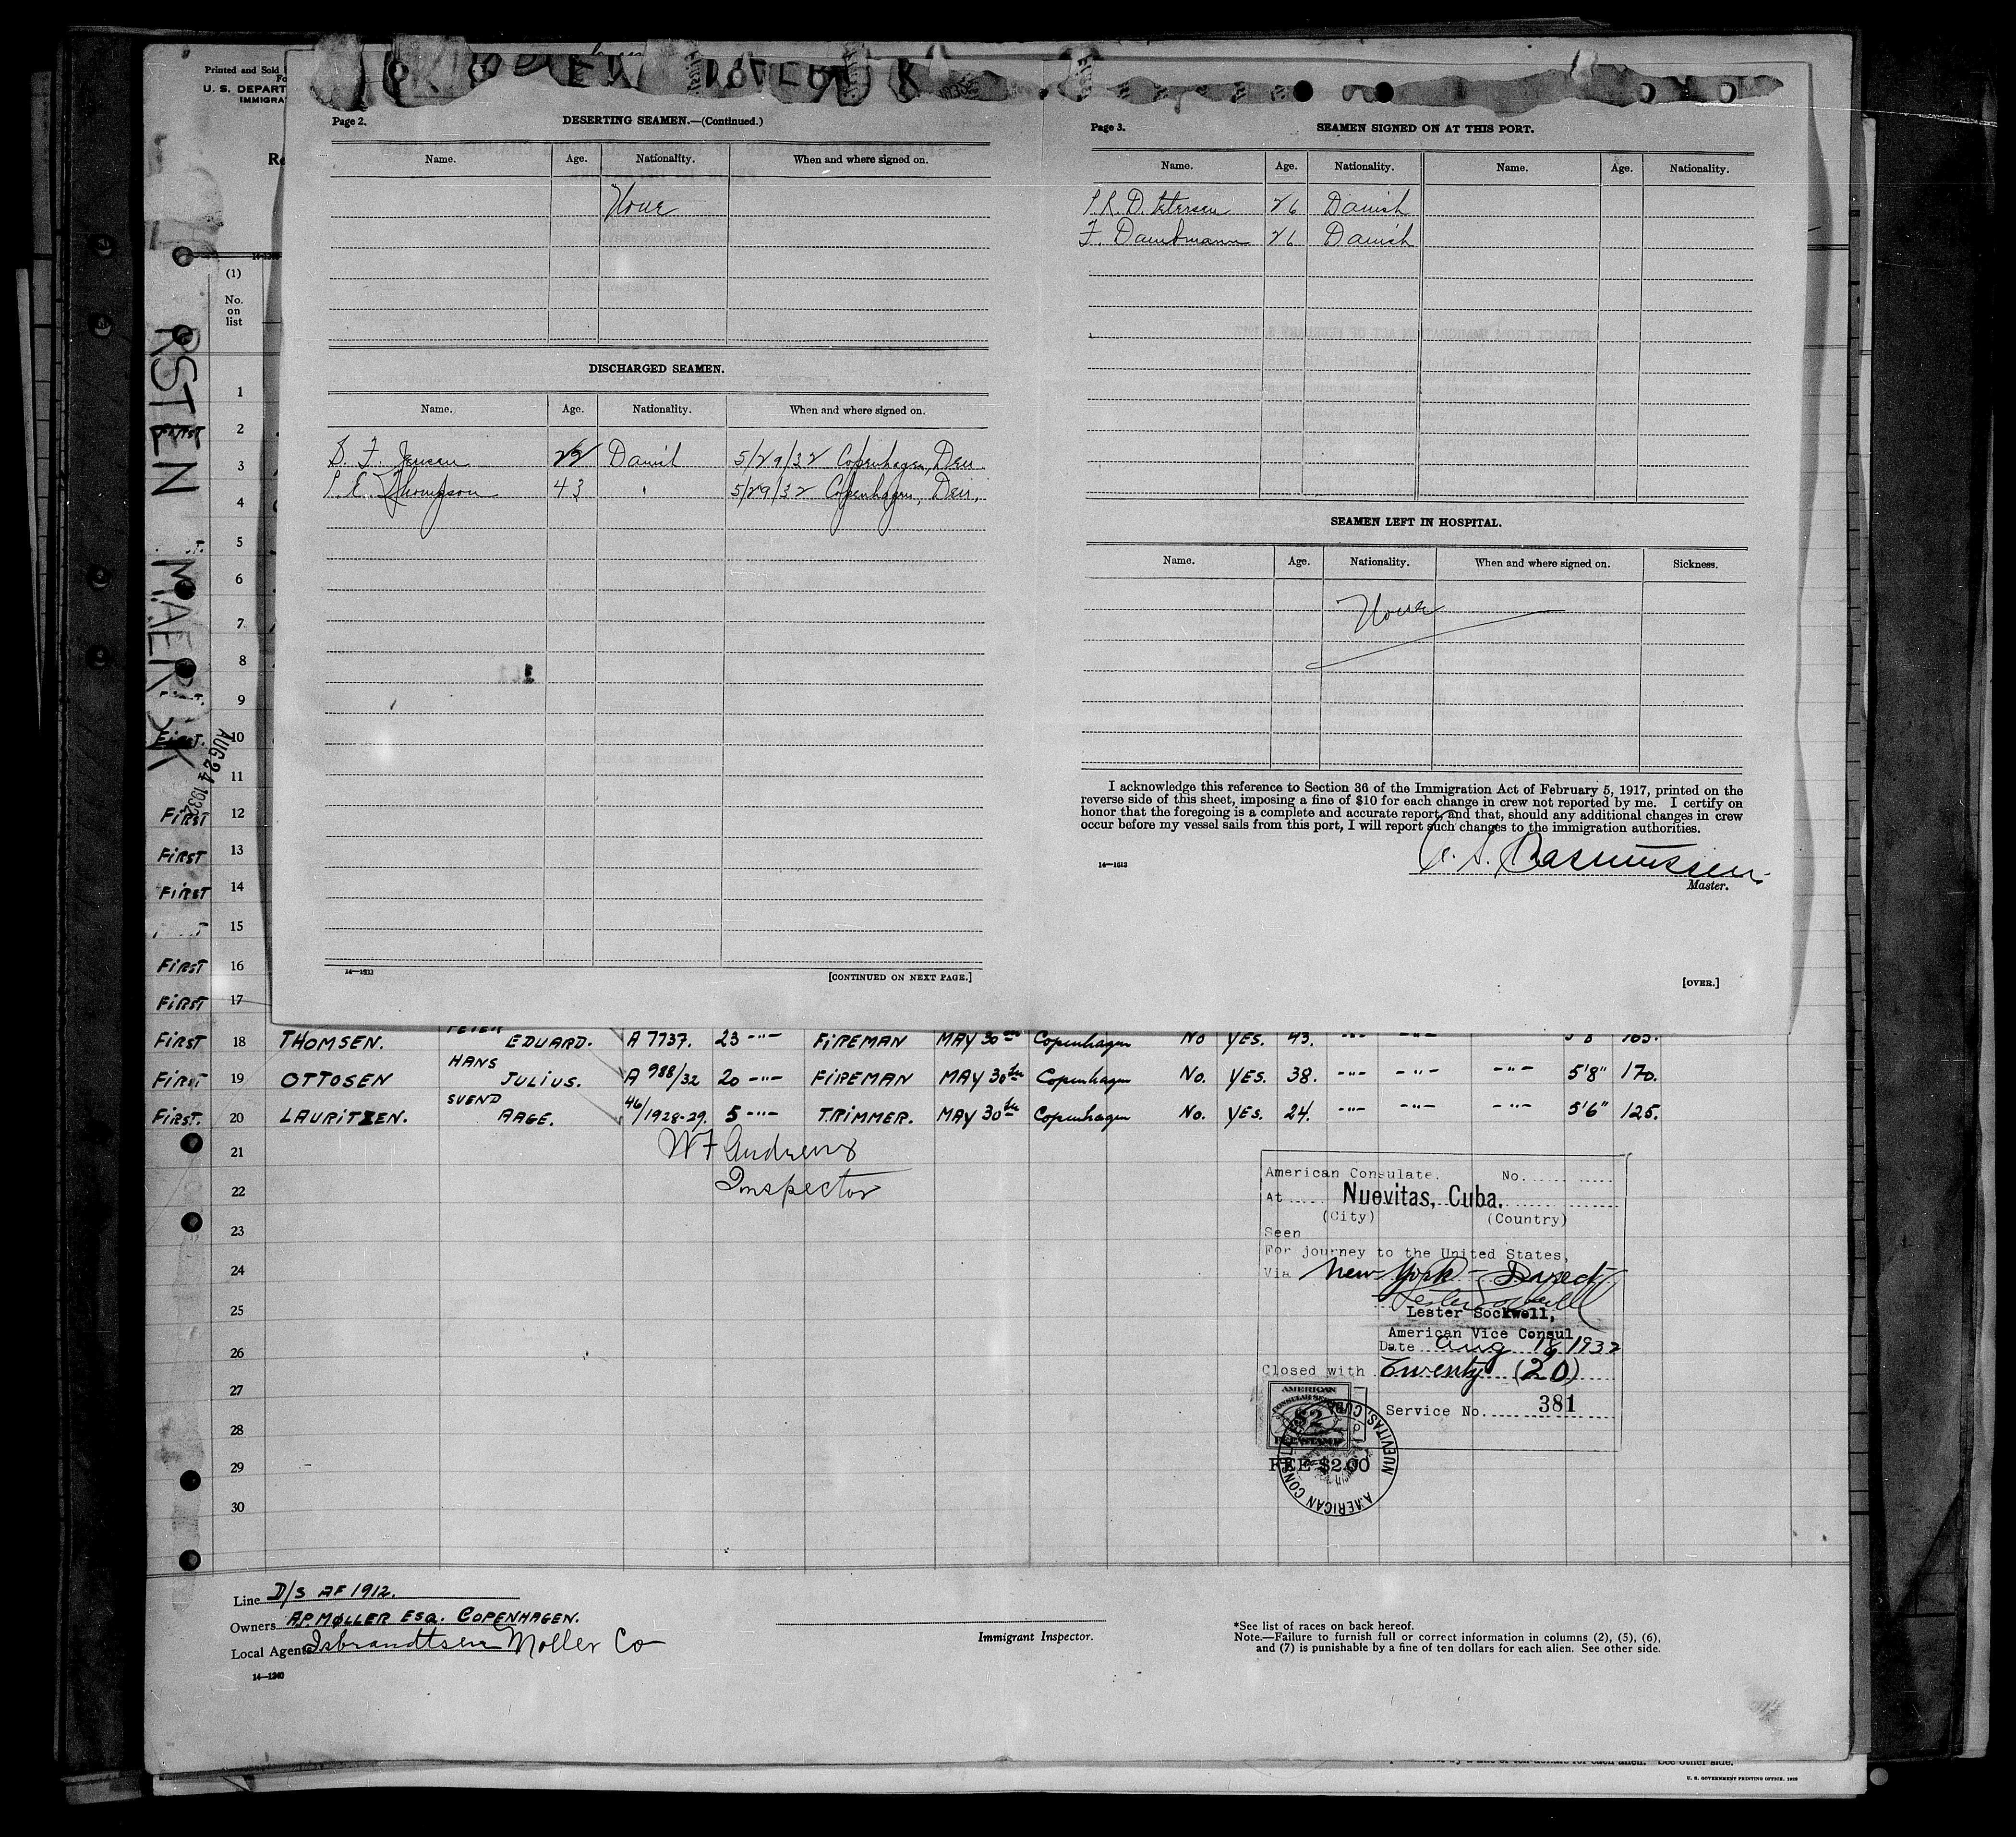 Printed and Sold
U. S. DEPART
IMMIGRA
Page 2.
DESERTING SEAMEN.—(Continued.)
Name. Age. Nationality. When and where signed on.
None
DISCHARGED SEAMEN.
Name. Age. Nationality. When and where signed on.
S. F. Jensen 22 Danish 5/29/32 Copenhagen, Den.
P. E. Thompson 43 " 5/29/32 Copenhagen, Den.
14—1613
[CONTINUED ON NEXT PAGE.]
Page 3.
SEAMEN SIGNED ON AT THIS PORT.
Name. Age. Nationality. Name. Age. Nationality.
P. R. D. Petersen 26 Danish
F. Dambmann 26 Danish
SEAMEN LEFT IN HOSPITAL.
Name. Age. Nationality. When and where signed on. Sickness.
None
I acknowledge this reference to Section 36 of the Immigration Act of February 5, 1917, printed on the
reverse side of this sheet, imposing a fine of $10 for each change in crew not reported by me. I certify on
honor that the foregoing is a complete and accurate report, and that, should any additional changes in crew
occur before my vessel sails from this port, I will report such changes to the immigration authorities.
14—1613
Rasmussen
Master.
[OVER.]
RSTEN MAERSK
AUG 24 1932
(1)
No.
on
list
1
2
3
4
5
6
7
8
9
First. 10
11
First 12
First 13
First 14
15
First 16
First 17
First 18 THOMSEN. PETER EDUARD. A 7737. 23 -"- FIREMAN MAY 30th Copenhagen No YES. 43. -"- -"- 5'8 165.
First 19 OTTOSEN HANS JULIUS. A 988/32 20 -"- FIREMAN MAY 30th Copenhagen No. YES. 38. -"- -"- -"- 5'8" 170.
First. 20 LAURITZEN. SVEND AAGE. 46/1928-29. 5 -"- TRIMMER. MAY 30th Copenhagen No. YES. 24. -"- -"- -"- 5'6" 125.
21
22
23
24
25
26
27
28
29
30
W F Andrews
Inspector
American Consulate. No.
At Nuevitas, Cuba.
(City) (Country)
Seen
For journey to the United States,
Via New York - Direct
Lester Sockwell
Lester Sockwell,
American Vice Consul
Date Aug 18, 1932
Closed with Twenty (20)
Service No. 381
AMERICAN
CONSULAR SERVICE
$2
FEE STAMP
FEE $2.00
AMERICAN CONSULATE NUEVITAS, CUBA
Line D/S AF 1912.
Owners A.P. MØLLER ESQ. COPENHAGEN.
Local Agents Isbrandtsen Moller Co
14—1240
Immigrant Inspector.
*See list of races on back hereof.
Note.—Failure to furnish full or correct information in columns (2), (5), (6),
and (7) is punishable by a fine of ten dollars for each alien. See other side.
U. S. GOVERNMENT PRINTING OFFICE.